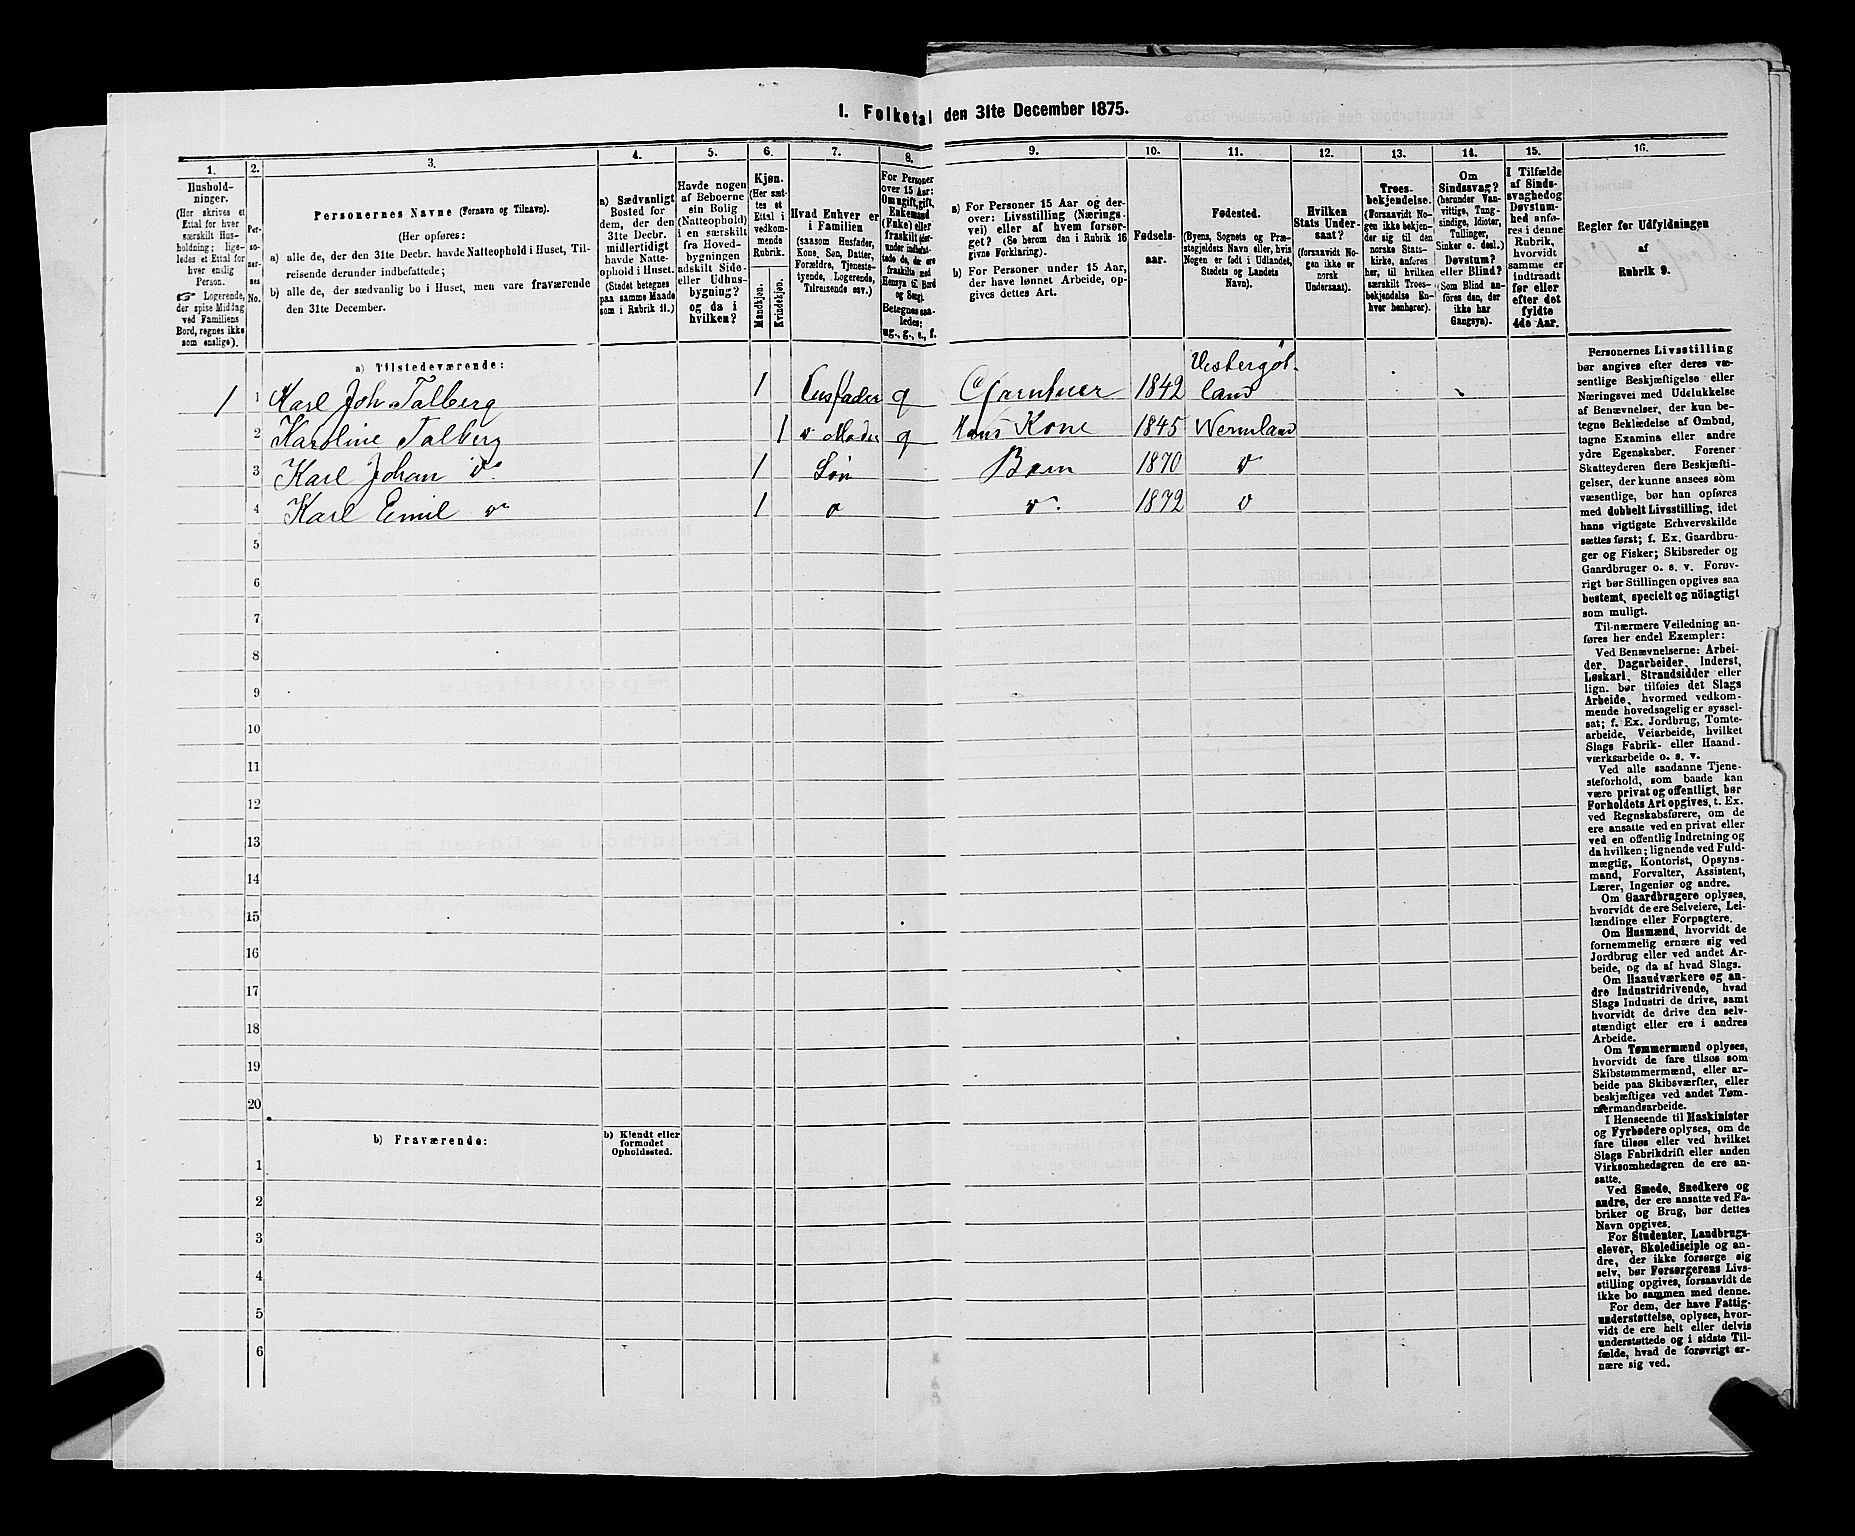 1. Folketal den 31te December 1875.
1.
Hushold-
ninger.
(Her skrives et
Ettal for hver
særskilt Hus-
holdning; lige-
ledes et Ettal for
hver enslig
Person.
☞ Logerende,
der spise Middag
ved Familiens
Bord, regnes ikke
som enslige).
2.
Per-
so-
ner-
nes
No.
3.
Personernes Navne (Fornavn og Tilnavn).
(Her opføres:
a) alle de, der den 31te Decbr. havde Natteophold i Huset, Til-
reisende derunder indbefattede;
b) alle de, der sædvanlig bo i Huset, men vare fraværende
den 31te December.
4.
a) Sædvanligt
Bosted for
dem, der den
31te Decbr.
midlertidigt
havde Natte-
ophold i Huset.
(Stedet betegnes
paa samme Maade
som i Rubrik 11.)
5.
Havde nogen
af Beboerne
sin Bolig
(Natteophold)
i en særskilt
fra Hoved-
bygningen
adskilt Side-
eller Udhus-
bygning?
og da i
hvilken?
6.
Kjøn.
(Her sæt-
tes et
Ettal i
vedkom-
mende
Rubrik.
Mandkjøn.
Kvindekjøn.
7.
Hvad Enhver er
i Familien
(saasom Husfader,
Kone, Søn, Datter,
Forældre, Tjeneste-
tyende, Logerende,
Tilreisende osv.)
8.
For Personer
over 15 Aar:
Om ugift, gift,
Enkemand
(Enke) eller
fraskilt (der-
under indbefat-
tede de, der ere
fraskilte med
Hensyn til Bord
og Seng).
Betegnes saa-
ledes:
ug., g., e., f.
9.
a) For Personer 15 Aar og der-
over: Livsstilling (Nærings-
vei) eller af hvem forsør-
get? (Se herom den i Rubrik 16
givne Forklaring).
b) For Personer under 15 Aar,
der have lønnet Arbeide, op-
gives dettes Art.
10.
Fødsels-
aar.
11.
Fødested.
(Byens, Sognets og Præ-
stegjeldets Navn eller, hvis
Nogen er født i Udlandet,
Stedets og Landets
Navn).
12.
Hvilken
Stats Under-
saat?
(forsaavidt No-
gen ikke er
norsk
Undersaat).
13.
Troes-
bekjendelse.
(Forsaavidt No-
gen ikke bekjen-
der sig til den
norske Stats-
kirke, anføres
her, til hvilken
særskilt Troes-
bekjendelse En-
hver henhører).
14.
Om
Sindssvag?
(herunder Van-
vittige, Tung-
sindige, Idioter,
Tullinger,
Sinker o. desl.)
Døvstum?
eller Blind?
(Som Blind an-
føres den, der
ikke har
Gangsyn).
15.
I Tilfælde
af Sinds-
svaghed og
Døvstum-
hed anfø-
res i denne
Rubrik,
hvorvidt
samme er
indtraadt
før eller
efter det
fyldte
4de Aar.
16.
Regler for Udfyldningen
af
Rubrik 9.
a) Tilstedeværende:
1 1 Karl Joh Talberg 1 Husfader g 1842 Vestergöt-
land
2 Karoline Talberg 1 v Moder g Hans Kone 1845 Wermland
3 Karl Johan do 1 Søn Barn 1870 do
4 Karl Emil do 1 do do 1872 do
5
6
7
8
9
10
11
12
13
14
15
16
17
18
19
20
b) Fraværende:
b) Kjendt eller
formodet
Opholdssted.
1
2
3
4
5
6
Personernes Livsstilling
bør angives efter deres væ-
sentlige Beskjæftigelse eller
Næringsvei med Udelukkelse
af Benævnelser, der kun be-
tegne Beklædelse af Ombud,
tagne Examina eller andre
ydre Egenskaber. Forener
Skatteyderen flere Beskjæfti-
gelser, der kunne ansees som
væsentlige, bør han opføres
med dobbelt Livsstilling, idet
hans vigtigste Erhvervskilde
sættes først; f. Ex. Gaardbru-
ger og Fisker; Skibsreder og
Gaardbruger o. s. v. Forøv-
rigt bør Stillingen opgives saa
bestemt, specielt og nöiagtigt
som muligt.
Til nærmere Veiledning an-
føres her endel Exempler:
Ved Benævnelserne: Arbei-
der, Dagarbeider, Inderst,
Løskarl, Strandsidder eller
lign. bør tilføies det Slags
Arbeide, hvormed vedkom-
mende hovedsagelig er syssel-
sat; f. Ex. Jordbrug, Tomte-
arbeide, Veiarbeide, hvilket
Slags Fabrik- eller Haand-
værksarbeide o. s. v.
Ved alle saadanne Tjene-
steforhold, som baade kan
være privat og offentligt, bør
Forholdets Art opgives, t. Ex.
ved Regnskabsførere, om de
ere ansatte ved en privat eller
ved en offentlig Indretning og
da hvilken; lignende ved Fuld-
mægtig, Kontorist, Opsyns-
mand, Forvalter, Assistent,
Lærer, Ingeniør og andre.
Om Gaardbrugere oplyses,
hvorvidt de ere Selveiere, Lei-
lændinge eller Forpagtere.
Om Husmænd, hvorvidt de
fornemmelig ernære sig ved
Jordbrug eller ved andet Ar-
beide, og da af hvad Slags.
Om Haandværkere og an-
dre Industridrivende, hvad
Slags Industri de drive, samt
hvorvidt de drive den selv-
stændigt eller ere i andres
Arbeide.
Om Tømmermænd oplyses,
hvorvidt de fare tilsøs som
Skibstømmermænd, eller ar-
beide paa Skibsværfter, eller
beskjæftiges ved andet Tøm-
mermandsarbeide.
I Henseende til Maskinister
og Fyrbødere oplyses, om de
fare tilsøs eller ved hvilket
Slags Fabrikdrift eller anden
Virksomhedsgren de ere an-
satte.
Ved Smede, Snedkere og
andre, der ere ansatte ved Fa-
briker og Brug, bør dettes
Navn opgives.
For Studenter, Landbrugs-
elever, Skoledisciple og an-
dre, der ikke forsørge sig
selv, bør Forsørgerens Livs-
stilling opgives, forsaavidt de
ikke bo sammen med denne.
For dem, der have Fattig-
understøttelse, oplyses, hvor-
vidt de ere helt eller delvis
understøttede og i sidste Til-
fælde, hvad de forøvrigt er-
nære sig ved.